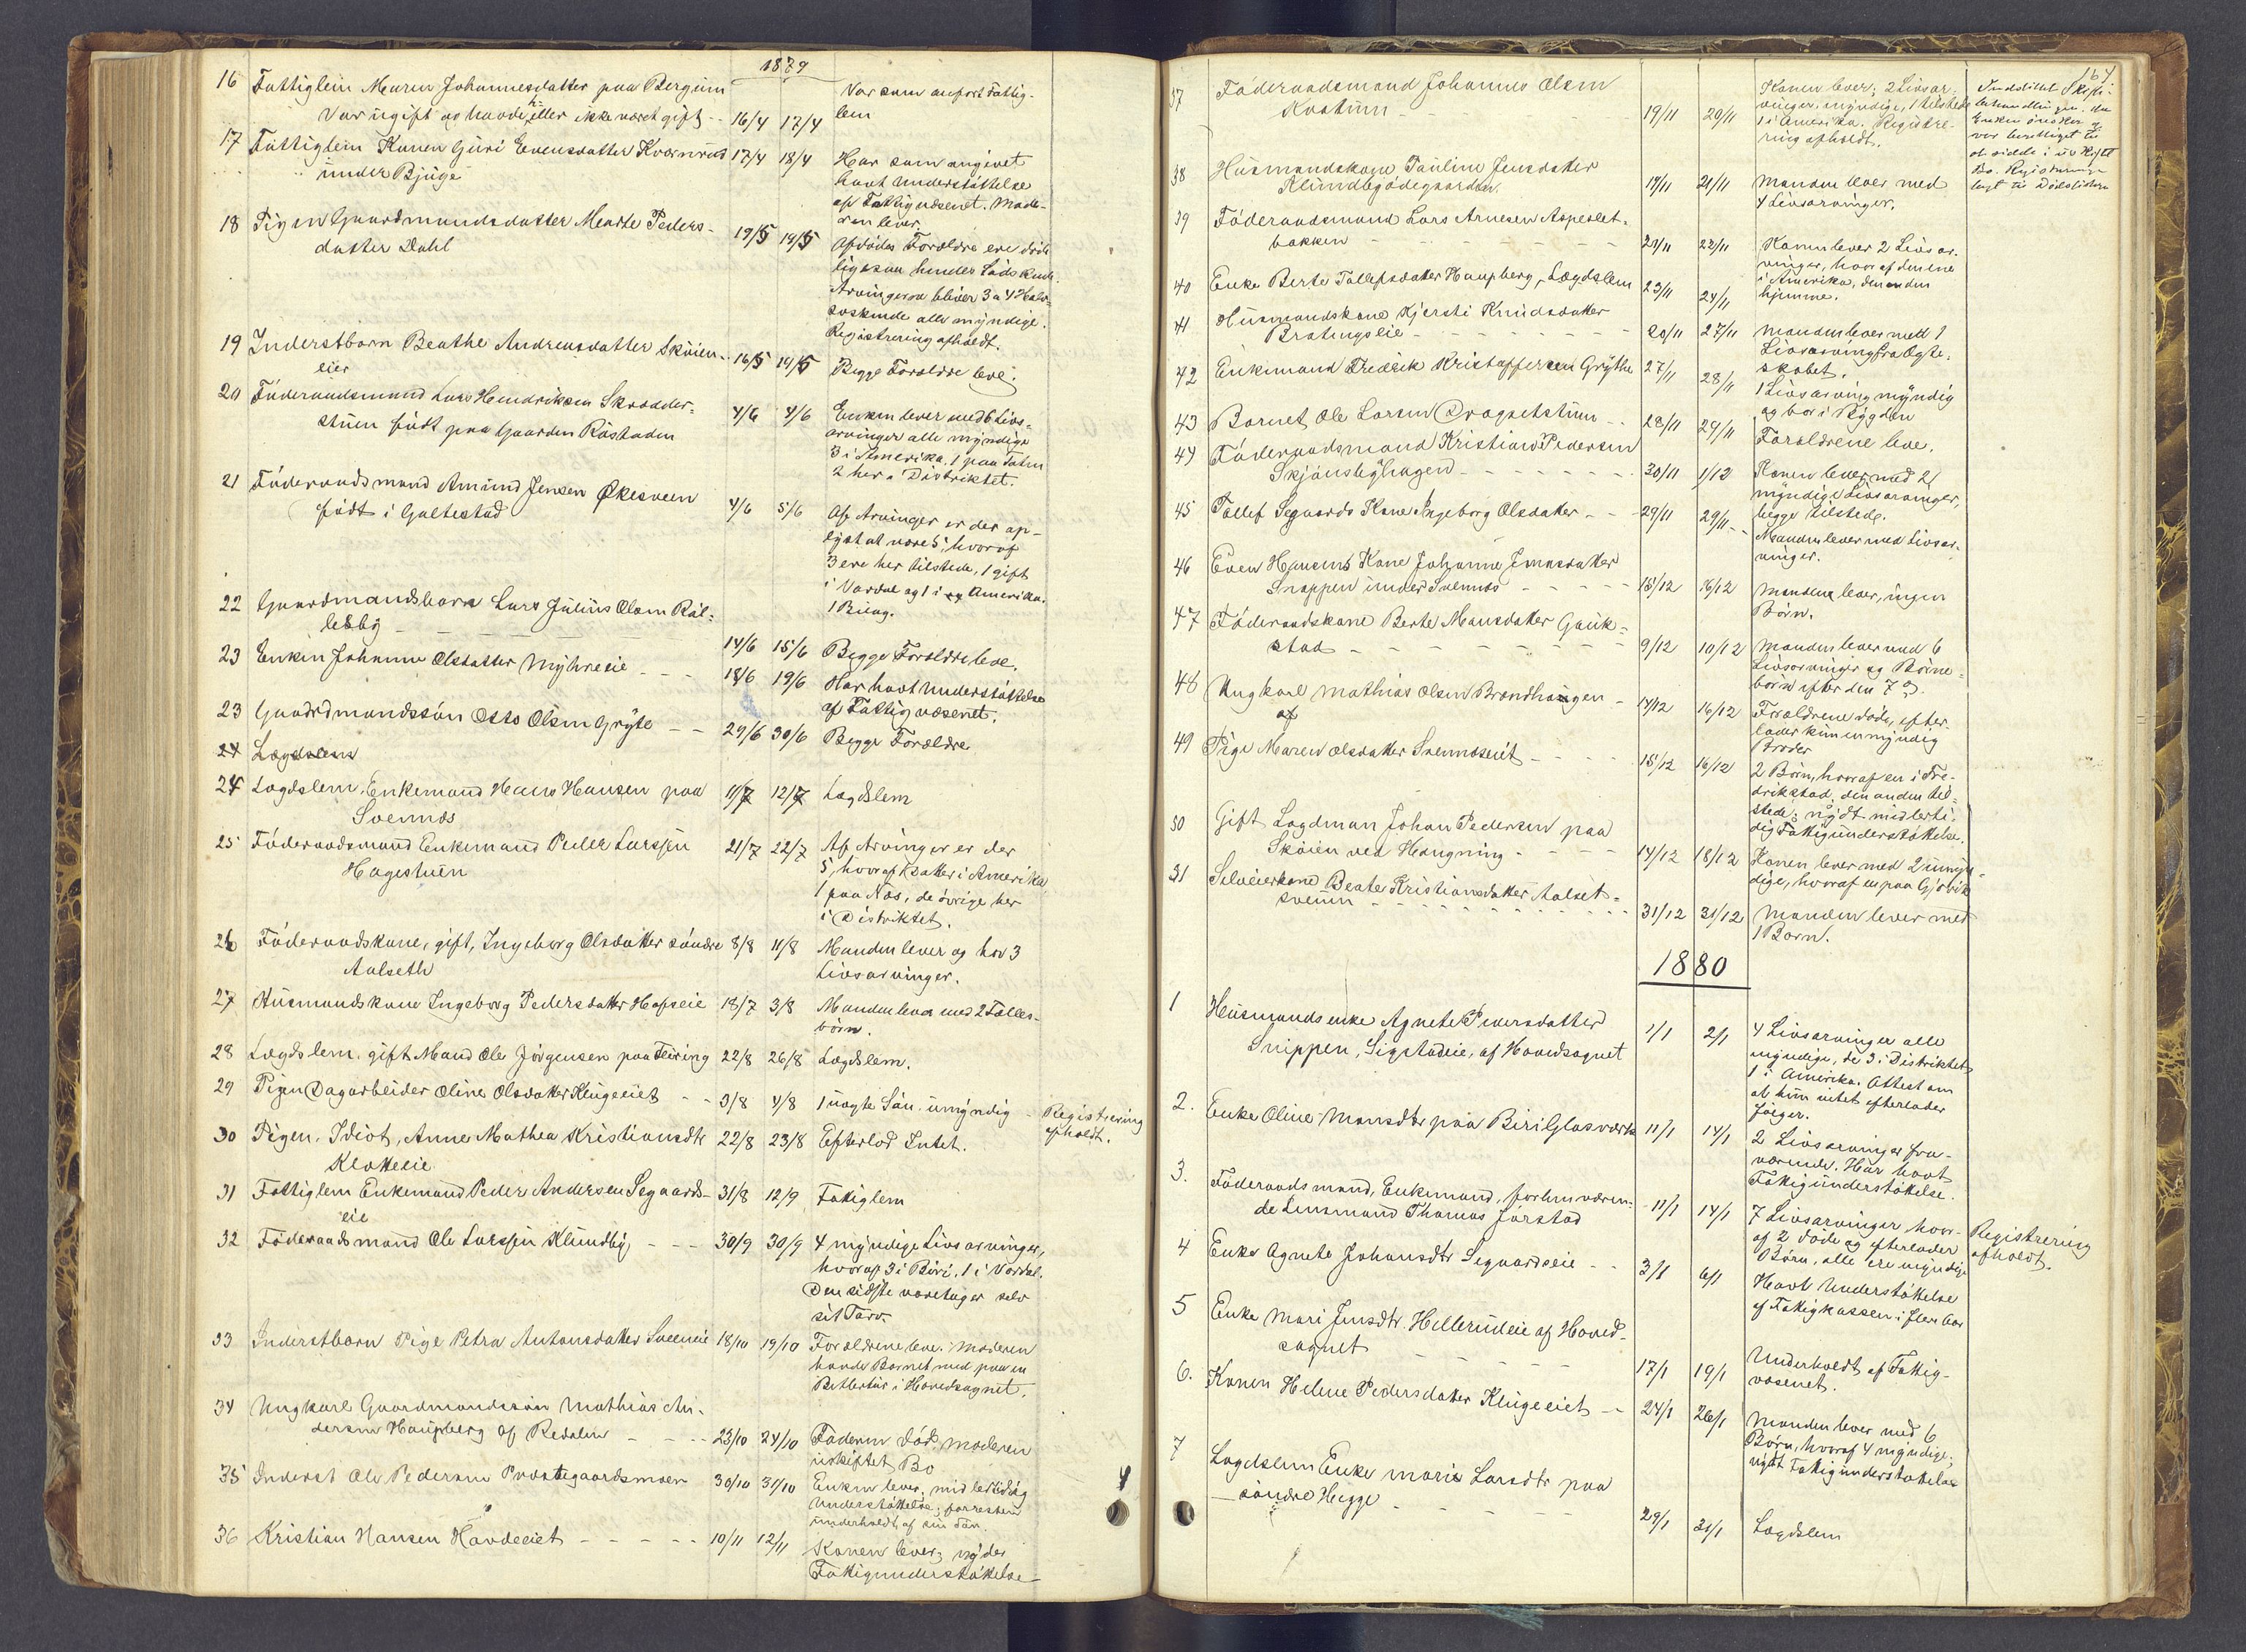 1879
16 Fattiglem Maren Johannesdatter paa Bergum
Var ugift og havde heller ikke været gift - 16/4 17/4
Var som anført Fattig-
lem
17 Fattiglem Konen Guri Evensdatter Kværnrud 17/4 18/4
under Bjuge
Har som angivet
havt Understøttelse
af Fattigvæsenet. Mode-
ren lever.
18 Pigen Gaardmandsdatter Marthe Peders-
datter Dahl 19/5 19/5
Afdødes Forældre ere døde
ligesaa hendes Sødskende
Arvingerne bliver 3 a 4 Halv-
søskende alle myndige.
Registrering afholdt.
19 Inderstbarn Beathe Andreasdatter Skøien-
eier 16/5 19/5
Begge Forældre leve.
20 Føderaadsmand Lars Hendriksen Skrædder-
stuen født paa Gaarden Røstaden 4/6 4/6
Enken lever med 6 Livs-
arvinger alle myndige
3 i Amerika, 1 paa Toten
2 her i Distriktet.
21 Føderaadsmand Amund Jensen Økesveen
født i Galtestad 4/6 5/6
Af Arvinger er der op-
lyst at være 5, hvoraf
3 ere her tilstede, 1 gift
i Vardal og 1 i Amerika.
22 Gaardmandsbarn Lars Julius Olsen Røl-
lesby 14/6 15/6
Begge Forældre leve.
23 Enken Johanne Olsdatter Myhreeie - - - 18/6 19/6
Har havt Understøttelse
af Fattigvæsenet.
23 Gaardmandssøn Otto Olsen Gryte - - 29/6 30/6 Begge Forældre
24 Lægdslem
24 Lægdslem, Enkemand Hans Hansen paa
Svennæs 11/7 12/7 Lægdslem
25 Føderaadsmand Enkemand Peder Larssen
Hagestuen 21/7 22/7
Af Arvinger er der
5, hvoraf 1 Datter i Amerika
1 paa Næs, de øvrige her
i Distriktet.
26 Føderaadskone, gift, Ingeborg Olsdatter søndre 8/8 11/8
Aalseth
Manden lever og har 3
Livsarvinger.
27 Husmandskone Ingeborg Pedersdatter Hofseie 18/7 3/8
Manden lever med 2 Fælles-
børn.
28 Lægdslem, gift Mand Ole Jørgensen paa Feiring 22/8 26/8 Lægdslem.
29 Pigen Dagarbeider Oline Olsdatter Klugeeiet - - 3/8 4/8 1 uægte Søn. umyndig - Registrering
afholdt.
30 Pigen, Idiot, Anne Mathea Kristiansdtr 22/8 23/8 Efterlod Intet.
Klokkeeie
31 Fattiglem Enkemand Peder Andersen Segaards- 31/8 12/9 Fattiglem
eie
32 Føderaadsmand Ole Larssen Klundby - - - 30/9 30/9
4 myndige Livsarvinger,
hvoraf 3 i Biri, 1 i Vardal.
Den sidste varetager selv
sit Tarv.
33 Inderstbarn Pige Petra Antonsdatter Sveeneie 18/10 19/10
Forældrene leve. Moderen
havde Barnet med paa en
Betlertur i Hovedsognet.
34 Ungkarl Gaardmandssøn Mathias An-
dersen Haugberg af Redalen - - - 23/10 24/10
Faderen død. Moderen
uskiftet Bo
35 Inderst Ole Pedersen Præstegaardsmoen 30/10 31/10
Enken lever, midlertidig
Understøttelse; forresten
underholdt af sin Søn.
36 Kristian Hansen Havdeeiet - - - - - 10/11 12/11
Konen lever; nyder
Fattigunderstøttelse
164
37 Føderaadsmand Johannes Olsen
Kvatum 19/11 20/11
Konen lever; 2 Livsar-
vinger, myndige, 1 tilstede
1 i Amerika. Registre-
ring afholdt.
Indstillet Skifte-
behandlingen, da
Enken ønsker og
var berettiget til
at sidde i uskiftet
Bo. Registreringen
lagt til Dødslisten
38 Husmandskone Pauline Jensdatter
Klundbgødegaarden. 19/11 21/11
Manden lever med
4 Livsarvinger.
39 Føderaadsmand Lars Arnesen Aspeslet-
bakken 21/11 22/11
Konen lever 2 Livsar-
vinger, hvoraf den ene
i Amerika, den anden
hjemme.
40 Enke Berte Tollefsdatter Haugberg, Lægdslem 23/11 24/11
41 Husmandskone Kjersti Knudsdatter
Bratengseie 20/11 27/11
Manden lever med 1
Livsarving fra Ægte-
skabet.
42 Enkemand Fredrik Kristoffersen Grythe 27/11 28/11
1 Livsarving myndig
og bor i Bygden
43 Barnet Ole Larsen Dragsetstuen - - 28/11 29/11
Forældrene leve.
44 Føderaadsmand Kristian Pedersen
Skjønsbyhagen 30/11 1/12
Konen lever med 2
myndige Livsarvinger,
begge tilstede.
45 Tollef Segaards Kone Ingeborg Olsdatter - - 29/11 29/11
Manden lever med Livsar-
vinger.
46 Even Hansens Kone Johanne Jonasdatter
Snappen under Svennes 15/12 16/12
Manden lever, ingen
Børn.
47 Føderaadskone Berte Mansdatter Gauk-
stad 9/12 10/12
Manden lever med 6
Livsarvinger og Børne-
børn efter den 7de.
48 Ungkarl Mathias Olsen Brændhaugen 14/12 16/12
Forældrene døde, efter
lader kun en myndig
Broder
49 Pige Maren Olsdatter Svennæseiet - - 15/12 16/12
2 Børn, hvoraf en i Fre-
drikstad, den anden til-
stede; nydt midlerti-
dig Fattigunderstøttelse.
50 Gift Lægdman Johan Pedersen paa
Skøien ved Hængning 14/12 18/12
Konen lever med 2 umyn-
dige, hvoraf en paa Gjøvik
51 Selveierkone Beate Kristiansdatter Aalset-
sveen 31/12 31/12
Manden lever med
1 Barn.
1880
1 Husmandsenke Agnete Pedersdatter
Snippen, Sigstadeie, af Hovedsognet 1/1 2/1
4 Livsarvinger alle
myndige, de 3 i Distriktet
1 i Amerika. Attest om
at hun intet efterlader
følger.
2. Enke Oline Mansdtr paa Biri Glasværk 11/1 14/1
2 Livsarvinger fra-
værende. Har havt
Fattigunderstøttelse.
3. Føderaadsmand, Enkemand, forhenværen-
de Lensmand Thomas Jørstad 11/1 14/1
7 Livsarvinger hvor-
af 2 døde og efterlader
Børn, alle ere myndige
Registrering
afholdt.
4 Enke Agnete Johansdtr Segaardseie - - 3/1 6/1
Havt Understøttelse
af Fattigkassen i flere Aar
5 Enke Mari Jensdtr. Hellerudeie af Hoved-
sognet 17/1 19/1
Underholdt af Fattig-
væsenet.
6. Konen Helene Pedersdatter Klugeeiet - - 24/1 26/1
Manden lever med 6
Børn, hvoraf 4 myndige;
nydt Fattigunderstøttelse
7 Lægdslem Enke Marie Larsdtr paa
søndre Hegge 29/1 31/1 Lægdslem